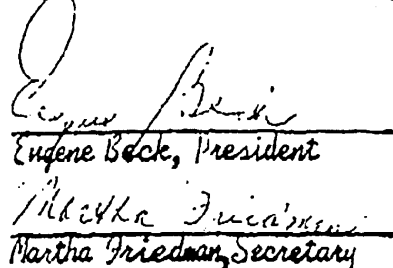 Eugene Beck
Eugene Beck, President
Martha Friedman
Martha Friedman, Secretary